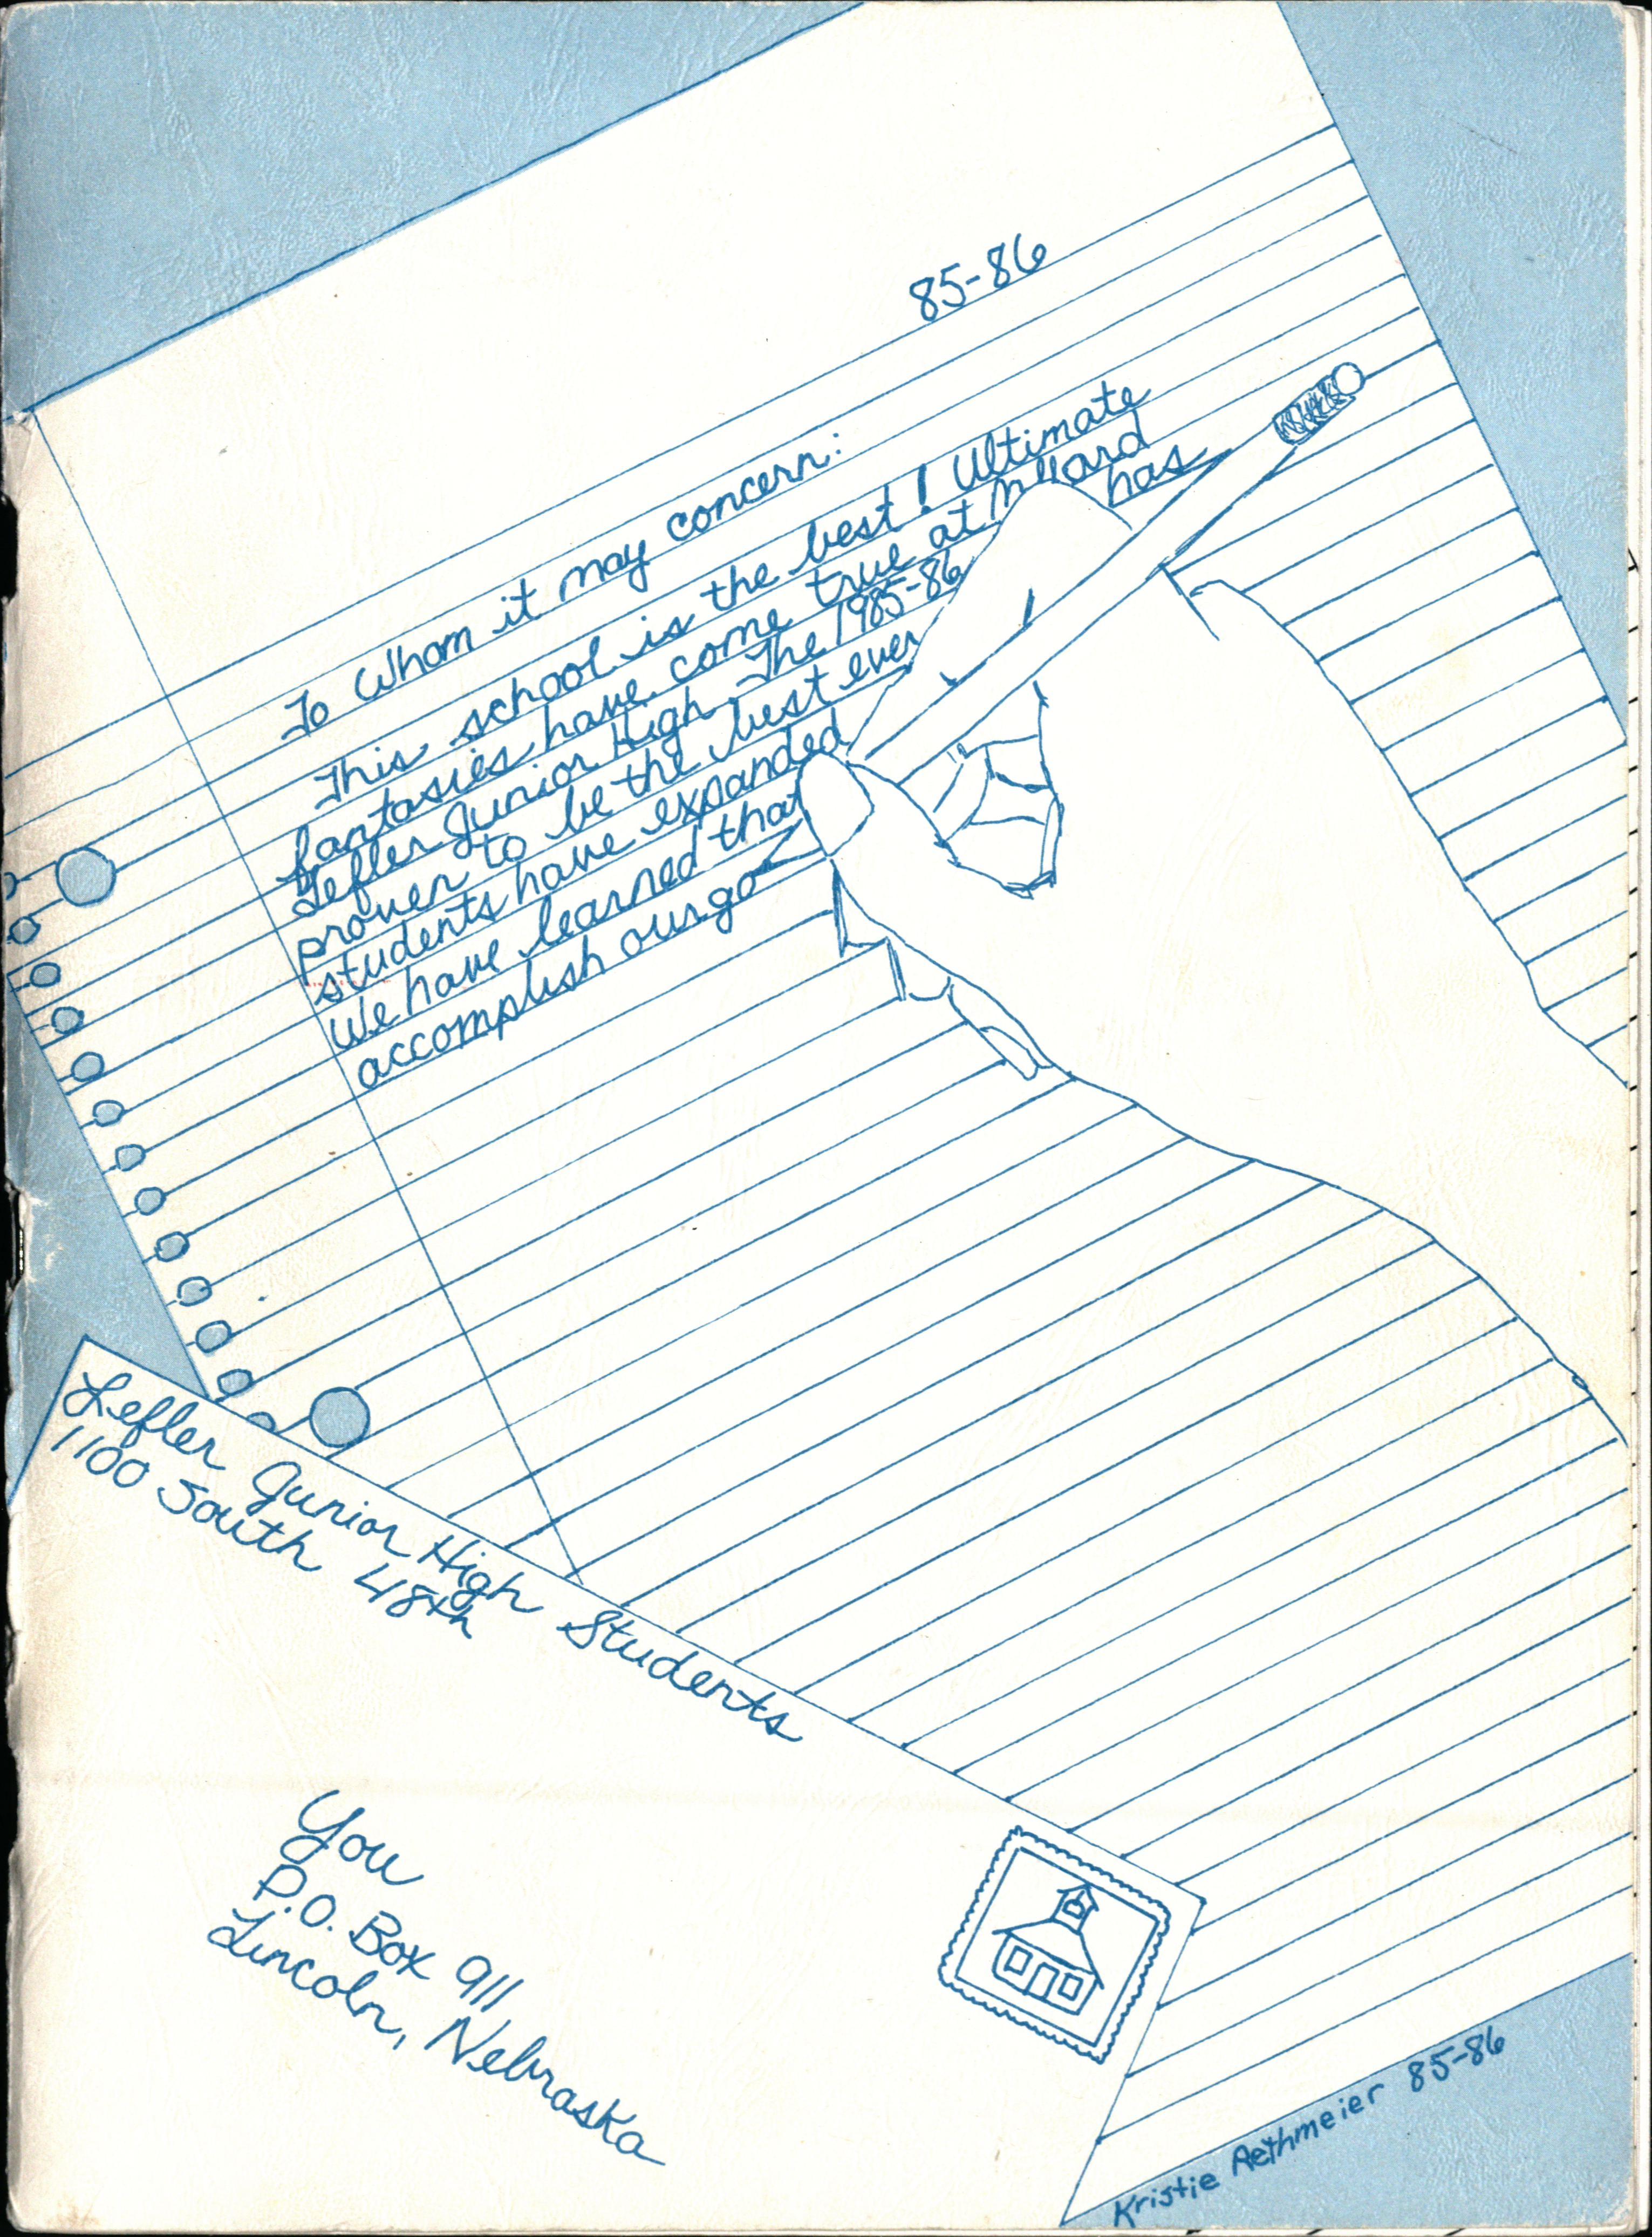 85-86
To Whom it may concern:
This school is the best! Ultimate
fantasies have come true at Millard
Lefler Junior High. The 1985-86 has
proven to be the best ever
students have expanded
We have learned that
accomplish our goa
Lefler Junior High Students
1100 South 48th
You
P.O. Box 911
Lincoln, Nebraska
Kristie Rethmeier 85-86